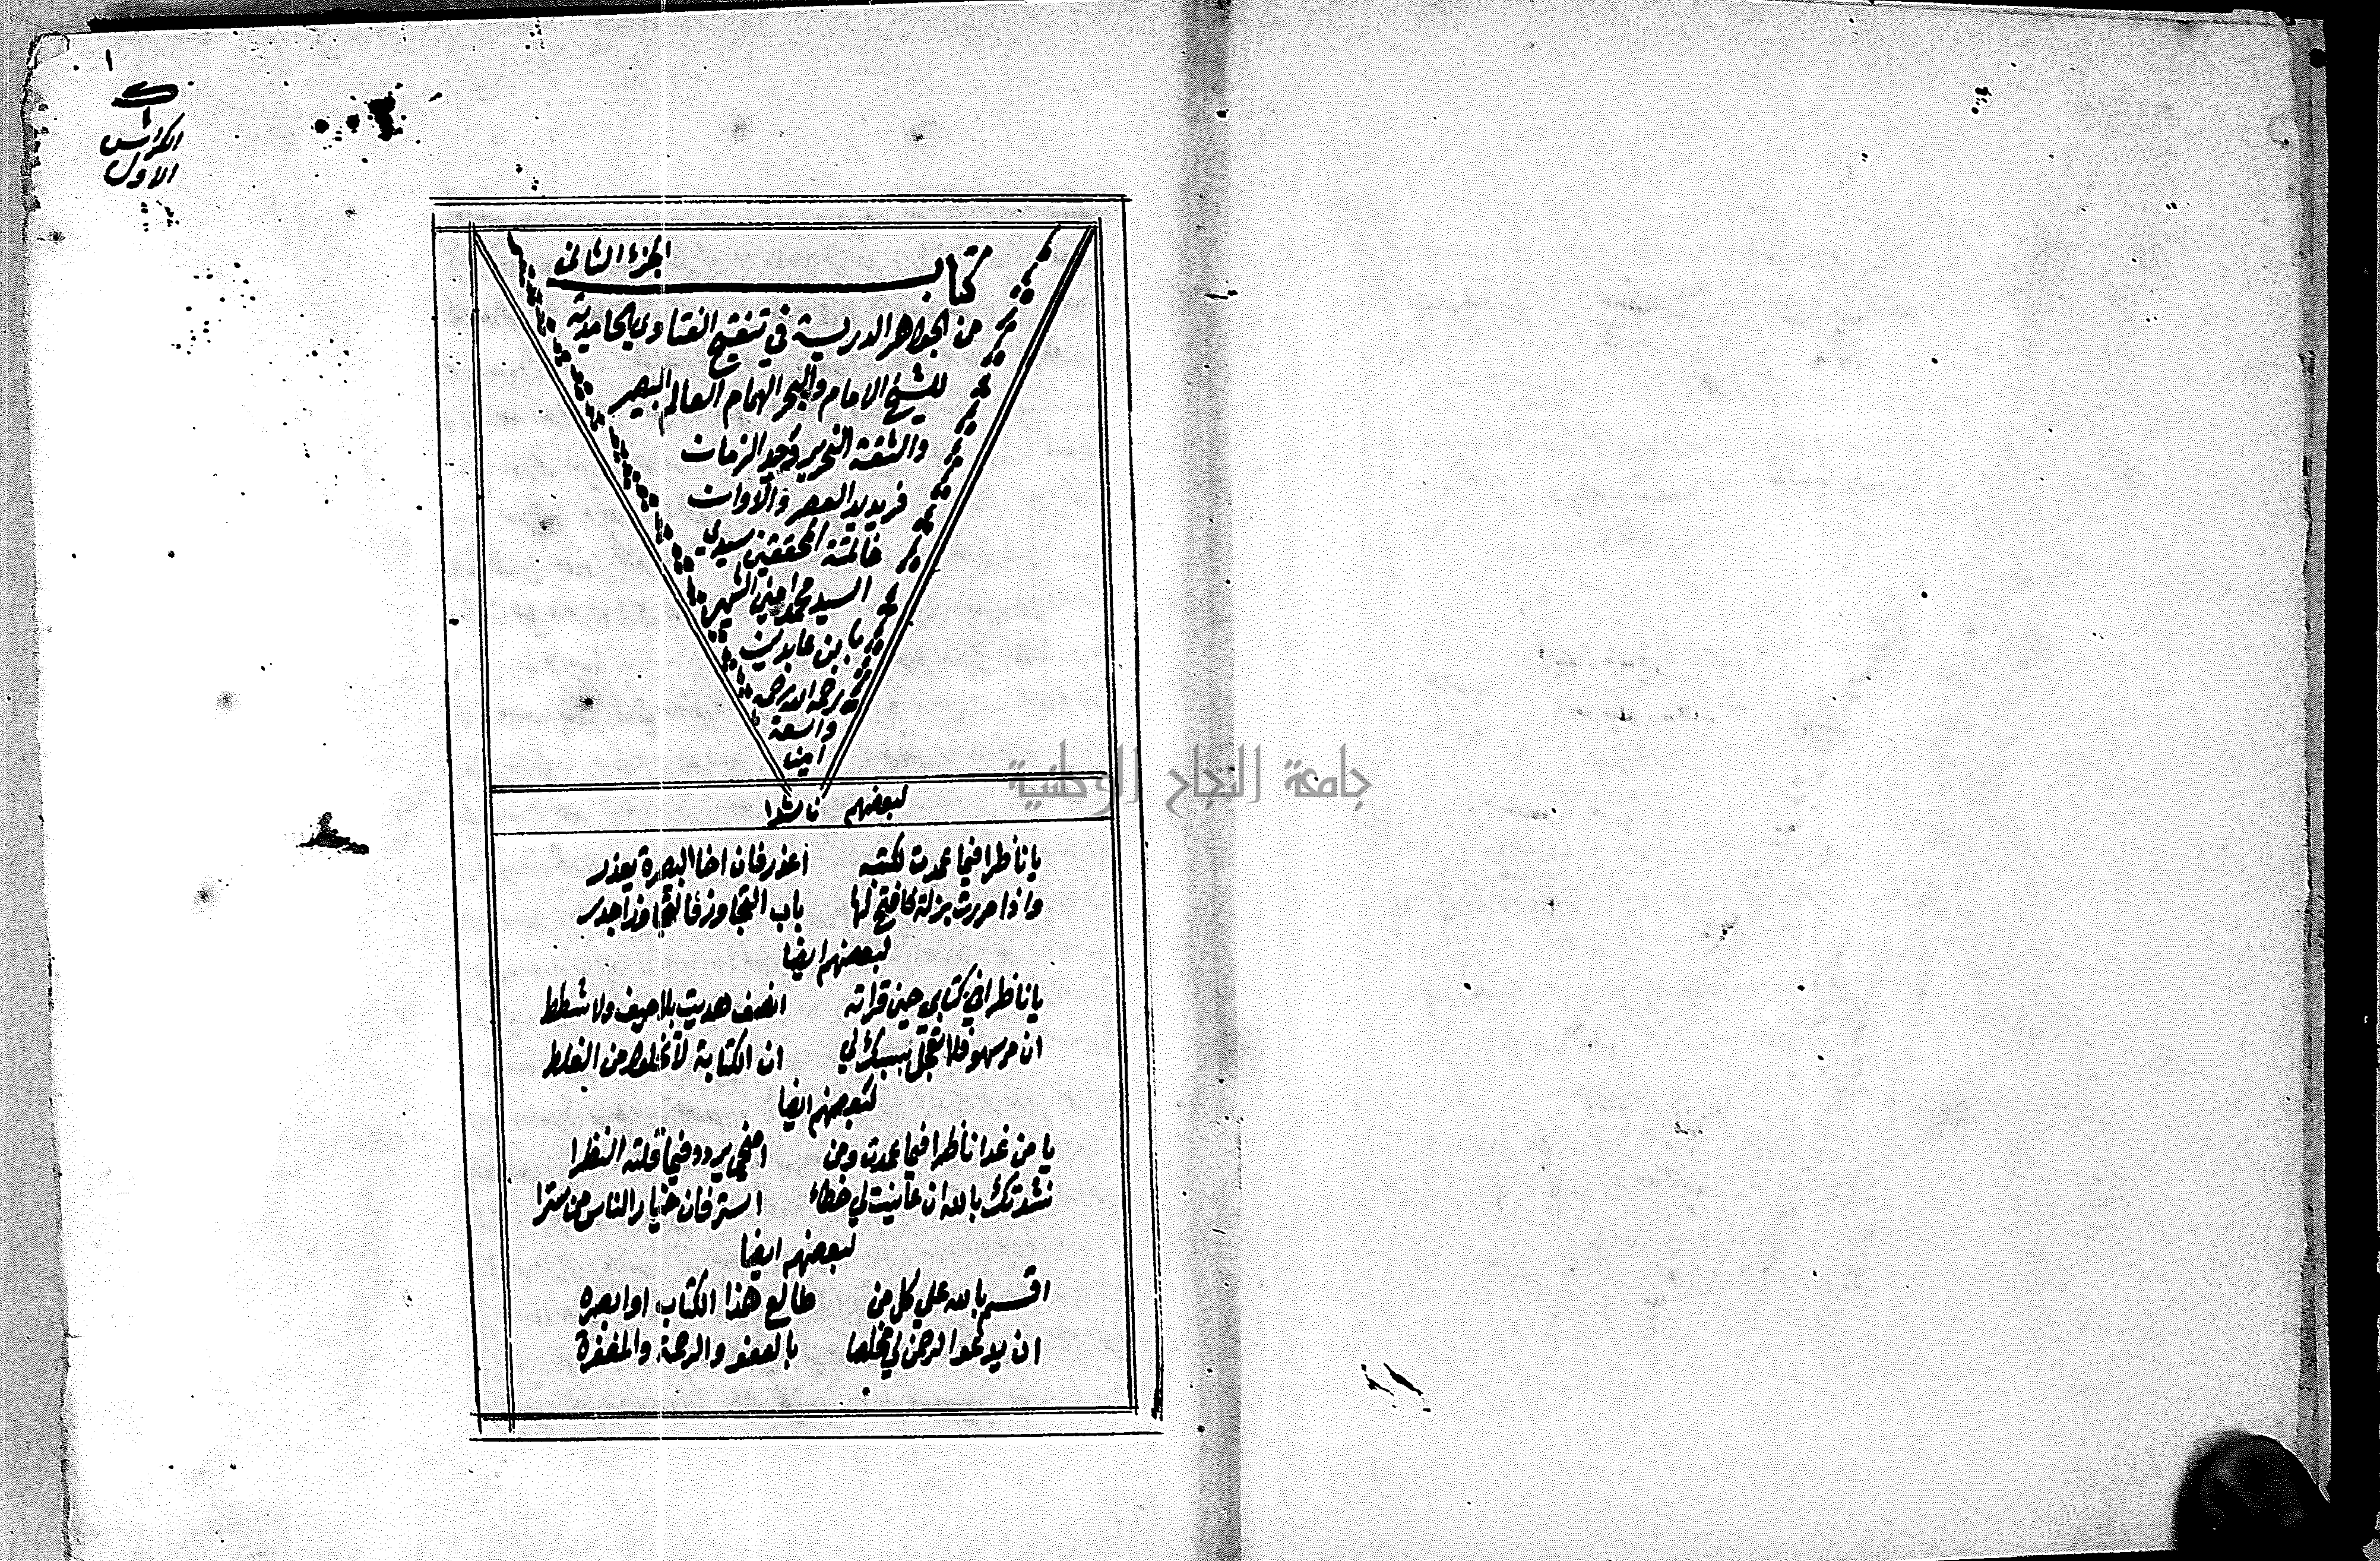 ١
ك
١
الكراس
الاول
كتاب الجزء الثاني
من الجواهر الدرية في تنقيح الفتاوى الحامدية
للشيخ الامام والبحر الهمام العالم البصير
والثقة النحرير وحيد الزمان
فريد العصر والاوان
خاتمة المحققين سيدي
السيد محمد امين الشهير
با بن عابدين
رحمه الله رحمة
واسعة
امين
لبعضهم ناشدا
يا ناظرا فيما عمدت لكتبه اعذر فان اخا البصرة يعذر
واذا مررت بزلة فافتح لها باب التجاوز فالتجاوز اجدر
لبعضهم ايضا
يا ناظرا في كتابي حين قراته انصف هديت بلا حيف ولا شطط
ان مر سهو فلا تعجل بسبك لي ان الكتابة لا تخلو من الغلط
لبعضهم ايضا
يا من غدا ناظرا فيما عمدت ومن اضحى يردد فيما قلته النظرا
نشدتك بالله ان عاينت لي خطأ استر فان خيار الناس من سترا
لبعضهم ايضا
اقسم بالله على كل من طالع هذا الكتاب او ابصره
ان يدعو الرحمن لي مخلصا بالعفو والرحمة والمغفرة
جامعة النجاح الوطنية